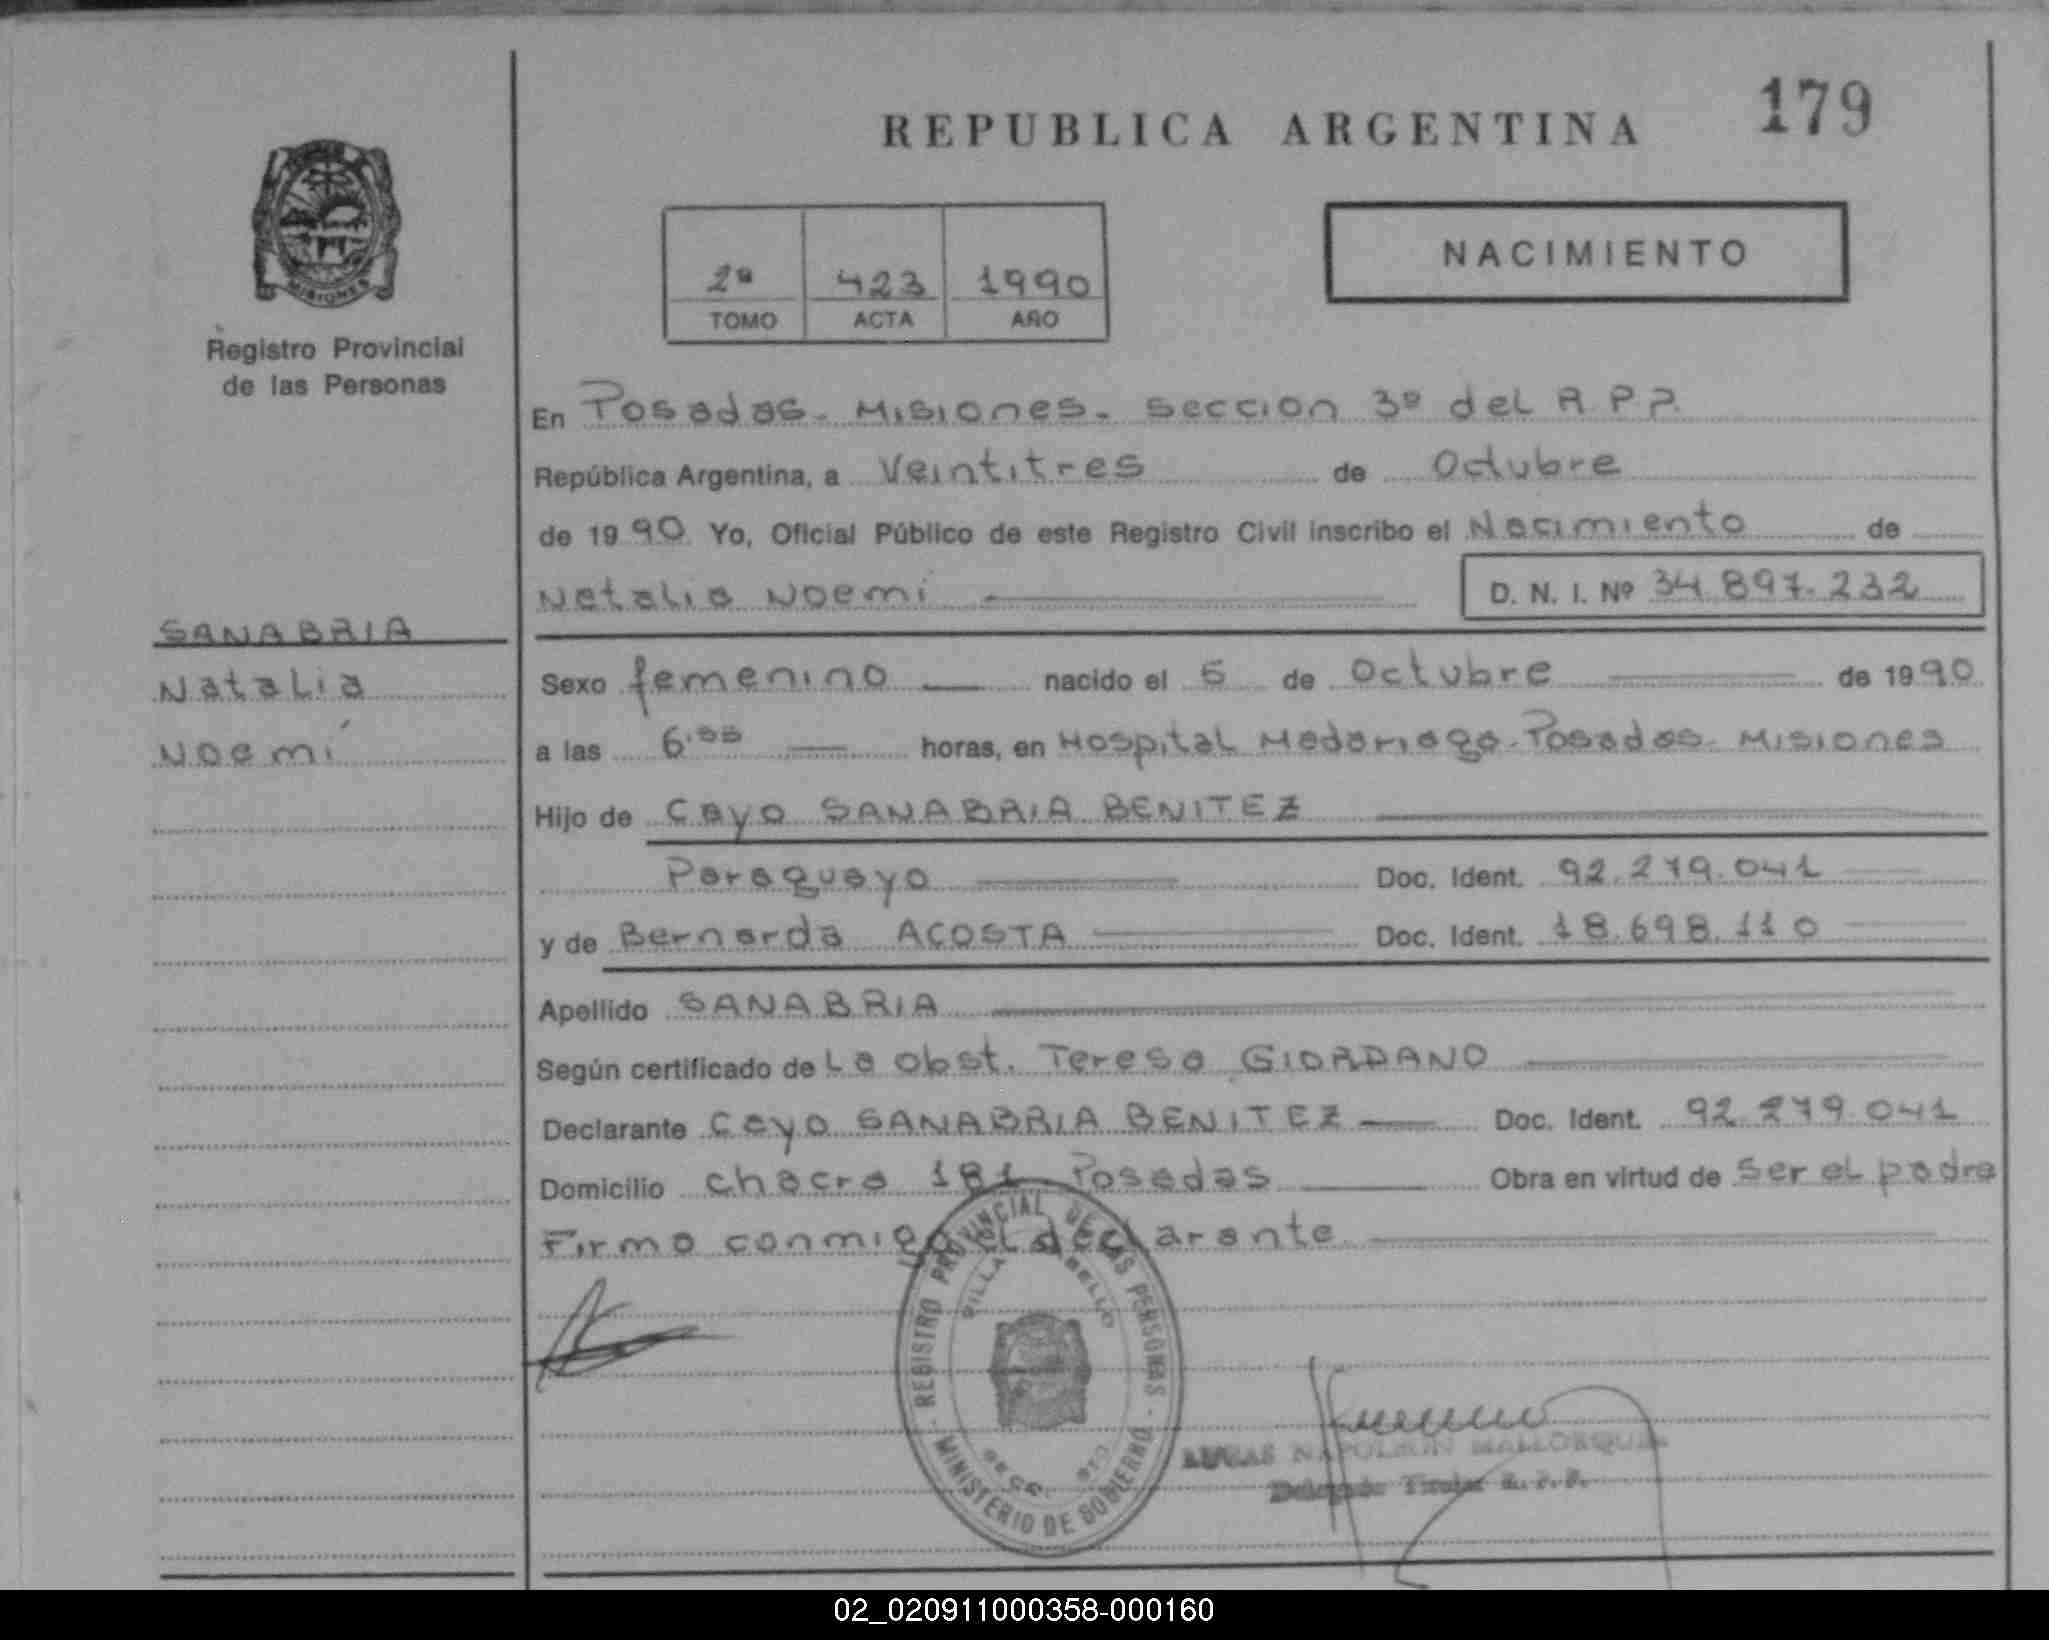 179
REPUBLICA ARGENTINA
NACIMIENTO
2ª 423 1990
TOMO ACTA AÑO
MISIONES
Registro Provincial
de las Personas
SANABRIA
Natalia
Noemí
En Posadas. Misiones. seccion 3º del R.P.P.
República Argentina, a Veintitres de Octubre
de 1990 Yo, Oficial Público de este Registro Civil inscribo el Nacimiento de
Natalia Noemí D. N. I. Nº 34.897.232
Sexo femenino nacido el 5 de Octubre de 1990
a las 6. horas, en Hospital Madariaga-Posadas-Misiones
Hijo de Cayo SANABRIA BENITEZ
Paraguayo Doc. Ident. 92.279.041
y de Bernarda ACOSTA Doc. Ident. 18.698.110
Apellido SANABRIA
Según certificado de La Obst. Teresa GIORDANO
Declarante Cayo SANABRIA BENITEZ Doc. Ident. 92.279.041
Domicilio chacra 181 Posadas Obra en virtud de ser el padre
Firma conmigo el declarante
REGISTRO PROVINCIAL DE LAS PERSONAS
MINISTERIO DE GOBIERNO
NAPOLEON MALLORQUIN
Delegado Titular R. P. P.
02_020911000358-000160